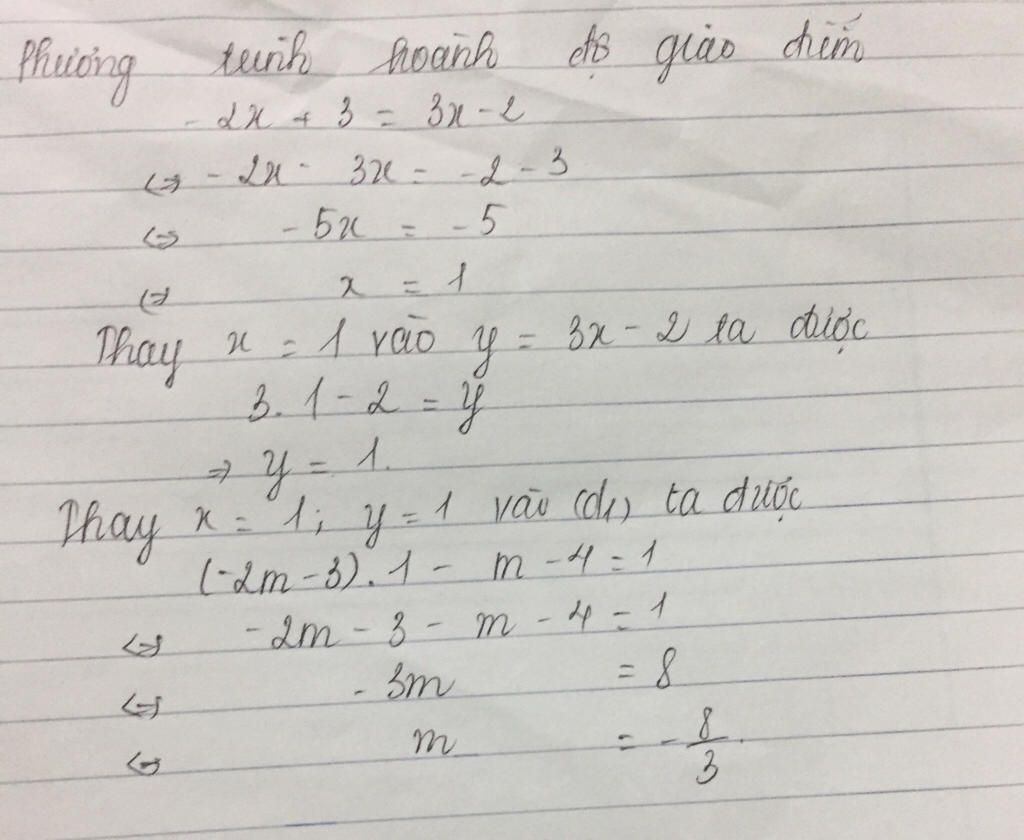 Phương trình hoành độ giao điểm
- 2x + 3 = 3x - 2
⇔ - 2x - 3x = -2 - 3
⇔ - 5x = - 5
⇔ x = 1
Thay x = 1 vào y = 3x - 2 ta được
3. 1 - 2 = y
⇒ y = 1.
Thay x = 1; y = 1 vào (d₁) ta được
(-2m - 3). 1 - m - 4 = 1
⇔ - 2m - 3 - m - 4 = 1
⇔ - 3m = 8
⇔ m = - 8/3.